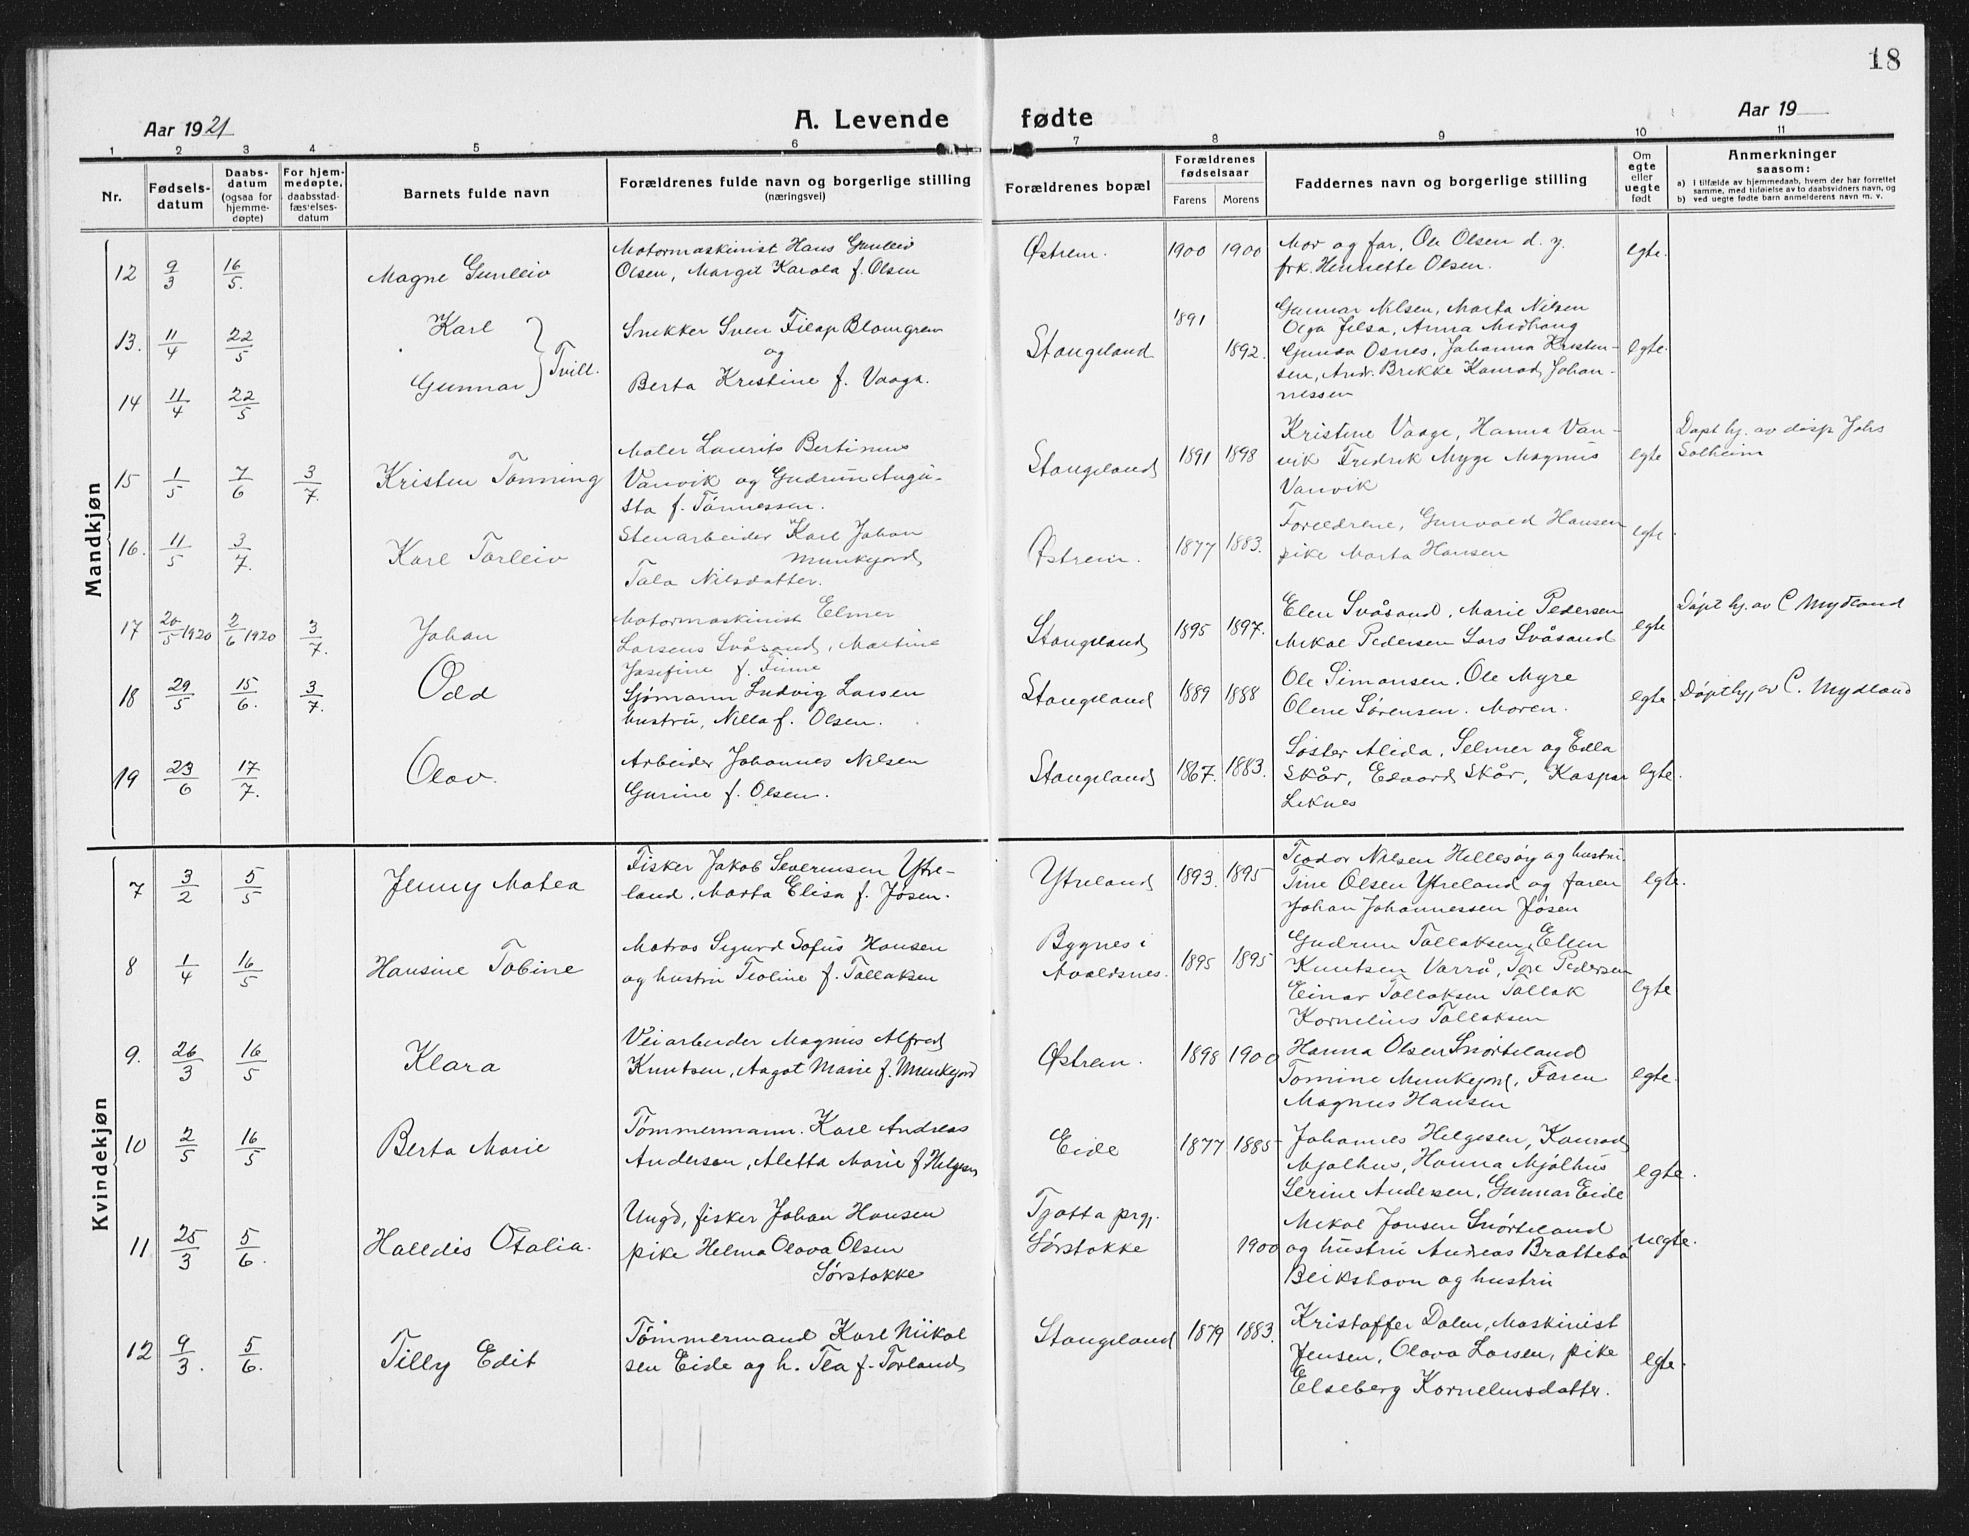 18
Aar 1921
A. Levende fødte
Aar 19
1 2 3 4 5 6 7 8 9 10 11
Nr.
Fødsels-
datum
Daabs-
datum
(ogsaa for
hjemme-
døpte)
For hjem-
medøpte,
daabsstad-
fæstelses-
datum
Barnets fulde navn
Forældrenes fulde navn og borgerlige stilling
(næringsvei)
Forældrenes bopæl
Forældrenes
fødselsaar
Farens Morens
Faddernes navn og borgerlige stilling
Om
egte
eller
uegte
født
Anmerkninger
saasom:
a) I tilfælde av hjemmedaab, hvem der har forrettet
samme, med tilføielse av to daabsvidners navn, og
b) ved uegte fødte barn anmelderens navn m. v.
Mandkjøn
12 9/3 16/5. Magne Gunleiv
Motormaskinist Hans Gunleiv
Olsen, Margit Karola f. Olsen
Østrem. 1900 1900
Mor og far, Ole Olsen d. y.
frk. Henriette Olsen.
egte.
13. 11/4 22/5 Karl
14 11/4 22/5 Gunnar } Tvill.
Snekker Sven Filap Blomgren
og
Berta Kristine f. Vaaga.
Stangeland 1891 1892.
Gunnar Nilsen, Marta Nilsen
Olga Jelsa, Anna Midhaug
Gunda Osnes, Johanna Kristen-
sen, Andr. Brekke Konrad Johan-
nessen
egte.
15 1/5 7/6 3/7. Kristen Tønning
Maler Laurits Bertinus
Vanvik og Gudrun Augu-
sta f. Tønnessen.
Stangeland 1891 1898
Kristine Vaage, Hanna Van-
vik Fredrik Myge Magnus
Vanvik
egte
Døpt hj. av disp Johs
Solheim
16. 11/5 3/7. Karl Torleiv
Stenarbeider Karl Johan
Munkejord
Tala Nilsdatter.
Østrem. 1877 1883.
Forældrene, Gunvald Hansen
pike Marta Hansen
egte
17 20/5 1920 2/6 1920 3/7. Johan
Motormaskinist Elmer
Larsens Svåsand, Martine
Josefine f. Finne
Stangeland 1895 1897.
Elen Svåsand, Marie Pedersen
Mikal Pedersen Lars Svåsand
egte
Døpt hj. av C Mydland
18 29/5 15/6. 3/7. Odd
Sjømann Ludvig Larsen
hustru, Nilla f. Olsen.
Stangeland 1889 1888
Ole Simonsen. Ole Myre
Olene Sørensen. Moren.
egte.
Døpt hj, av C. Mydland
19 23/6 17/7. Olav.
Arbeider Johannes Nilsen
Gurine f. Olsen.
Stangeland 1867. 1883.
Søster Alida, Selmer og Edla
Skår, Edvard Skår, Kaspar
Liknes
egte.
Kvindekjøn
7 3/2 5/5 Jenny Matea
Fisker Jakob Severinsen Ytre-
land, Marta Elisa f. Jøsen.
Ytreland 1893. 1895
Teodor Nilsen Hellesøy og hustru.
Tine Olsen Ytreland og faren
Johan Johannessen Jøsen
egte.
8 1/4 16/5 Hansine Tobine
Matros Sigurd Sofus Hansen
og hustru Teoline f. Tollaksen
Bygnes i
Avaldsnes. 1895 1895
Gudrun Tollaksen, Elen
Knutsen Varrå, Tore Pedersen
Einar Tollaksen Tollak
Kornelius Tollaksen
egte
9. 26/3 16/5 Klara
Veiarbeider Magnus Alfred
Knutsen, Aagot Marie f. Munkejord
Østrem. 1898 1900
Hanna Olsen Snørteland
Tomine Munkejord, Faren
Magnus Hansen
egte.
10 2/5 16/5 Berta Marie
Tømmermann. Karl Andreas
Andersen, Aletta Marie f Helgesen
Eide 1877 1885
Johannes Helgesen, Konrad
Mjølhus, Hanna Mjølhus
Serine Andersen, Gunnar Eide
egte.
11. 25/3 5/6. Halldis Otalia.
Ungd, fisker Johan Hansen
pike Helma Olava Olsen
Sørstokke
Tjøtta prgj.
Sørstokke 1900
Mikal Jonsen Snørteland
og hustru Andreas Brattebø
Bleikshavn og hustru
uegte.
12 9/3. 5/6. Tilly Edit
Tømmermand Karl Mikal
sen Eide og h. Tea f. Torland
Stangeland 1879 1883.
Kristoffer Dalen, Maskinist
Jensen, Olava Larsen, pike
Elseberg Korneliusdatter.
egte.